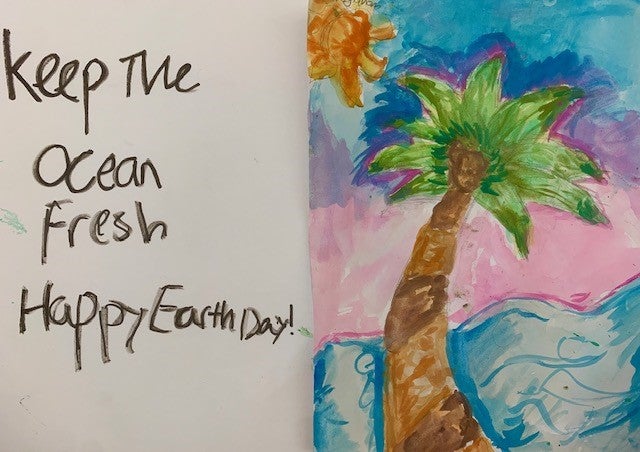 Keep The
Ocean
Fresh
Happy Earth Day!